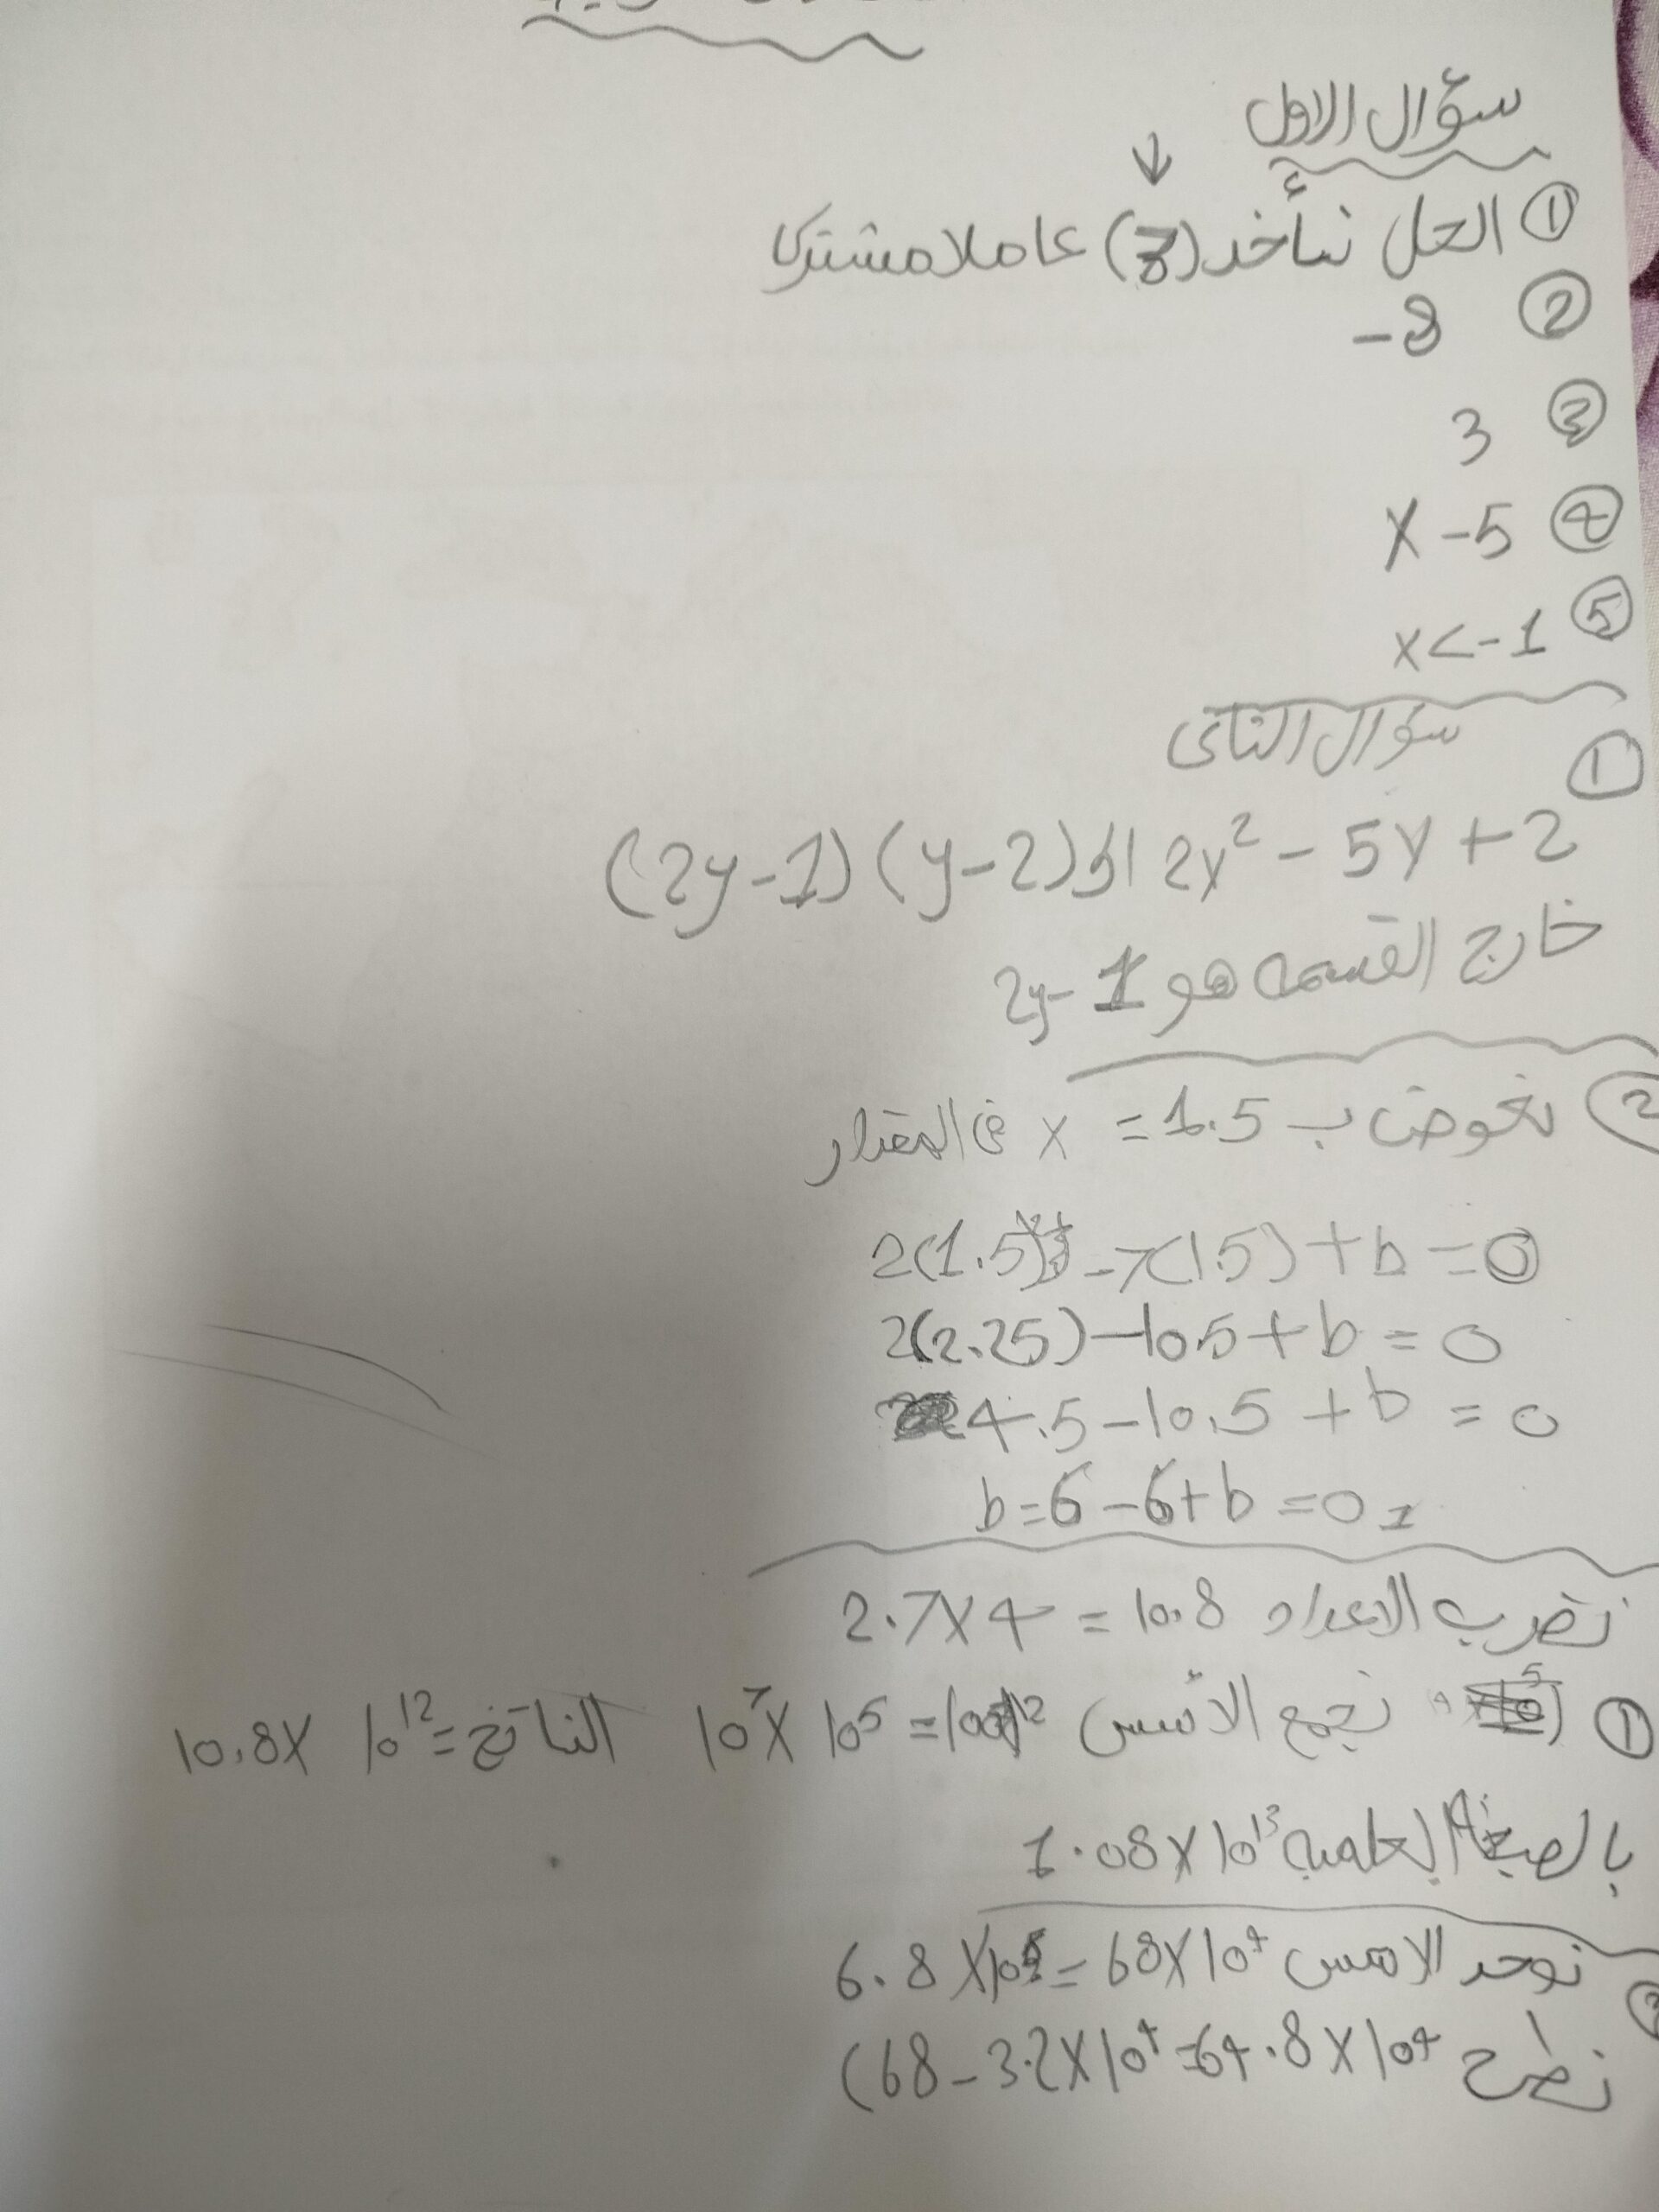 سؤال الاول
① الحل نأخد (3) عاملا مشتركا
② -8
③ 3
④ X-5
⑤ x<-1
سؤال الثانى
①
2y² - 5y + 2 الى (y-2) (2y-1)
خارج القسمه هو 2y-1
② نعوض ب x = 1.5 فى المقدار
2(1.5)² -7(1.5) + b = 0
2(2.25) - 10.5 + b = 0
4.5 - 10.5 + b = 0
b=6 -6+b =0
نضرب الاعداد 2.7X4 = 10.8
① نجمع الأسس 10⁷X 10⁵ = 10¹² الناتج = 10.8X 10¹²
بالصيغة العلميه 1.08X10¹³
نوحد الاسس 6.8X10⁵ = 68X10⁴
نطرح (68-3.2X10⁴=64.8X10⁴